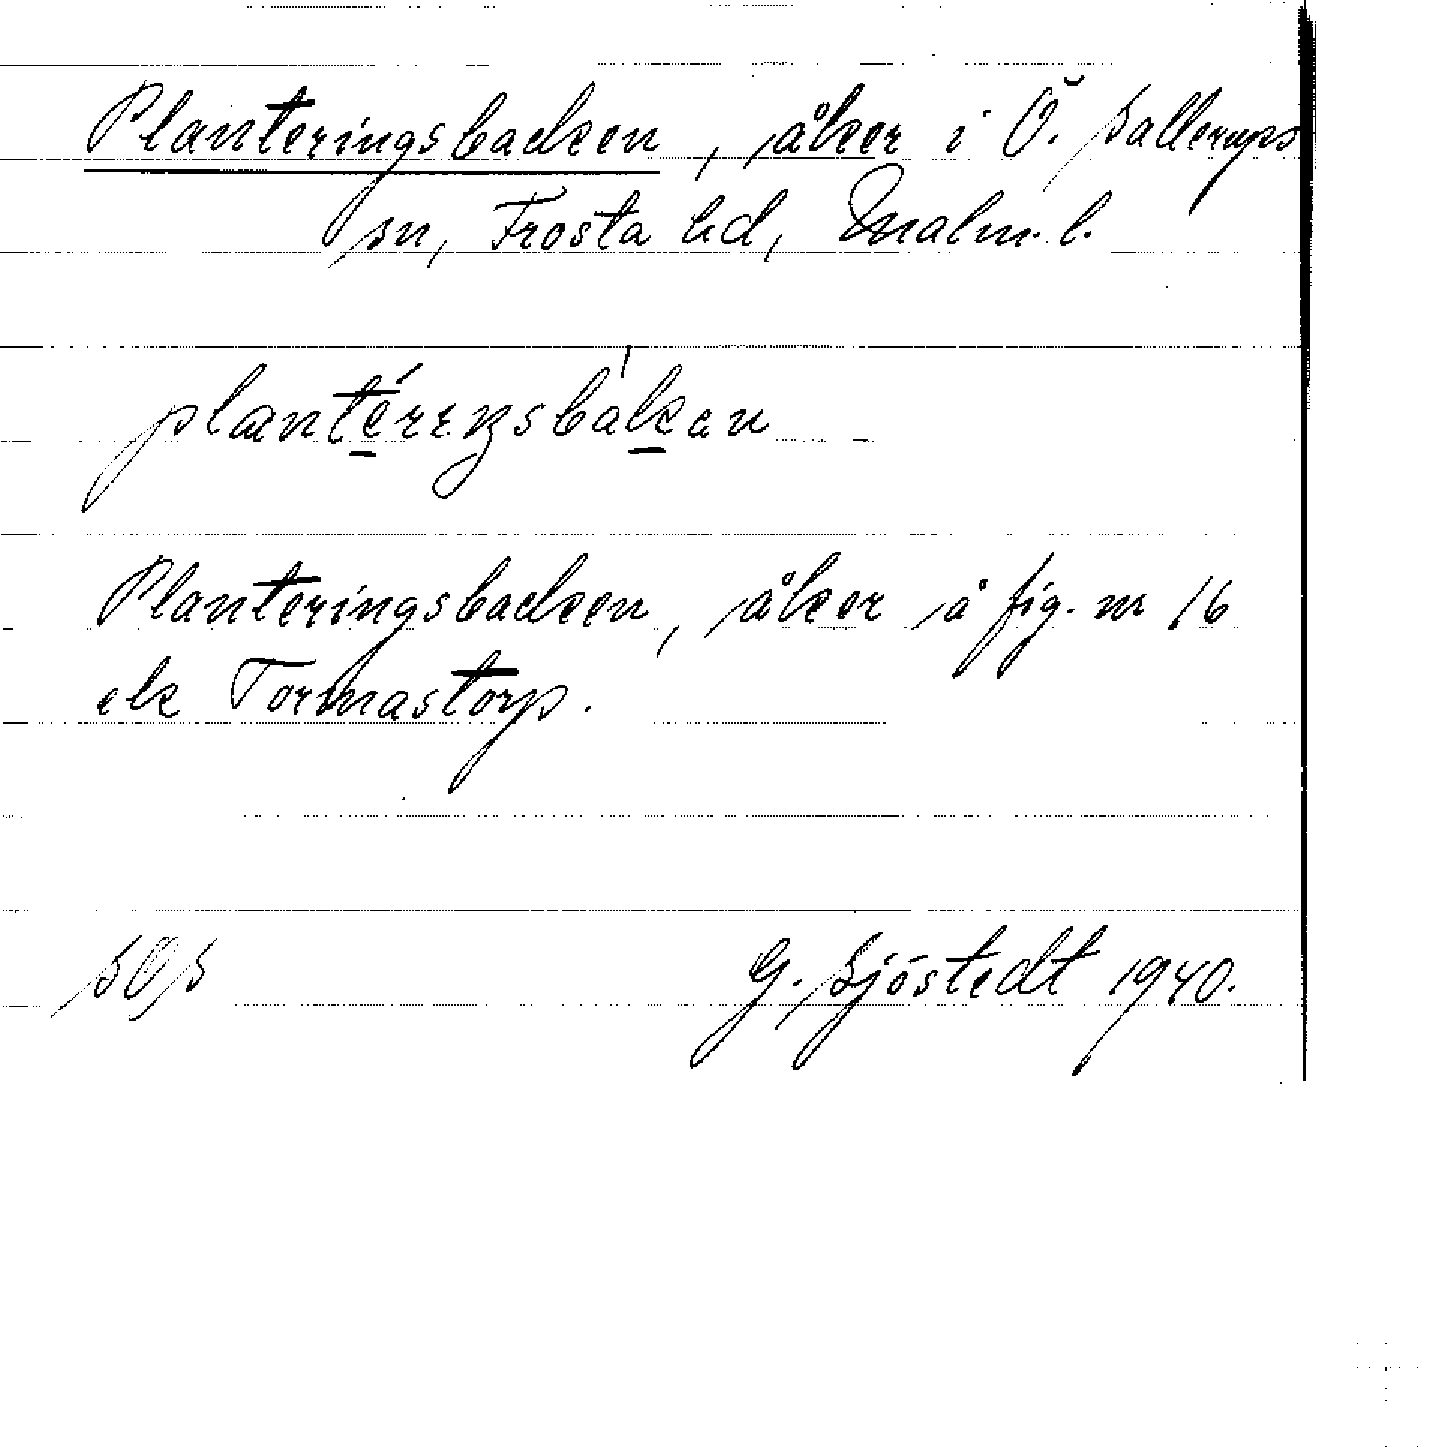 Planteringsbacken, åker i Ö. Sallerups
sn, Frosta hd, Malm. l.
plantérıŋsbákan
Planteringsbacken, åker å fig. nr 16
ek Tormastorp.
SOS
G. Sjöstedt 1940.